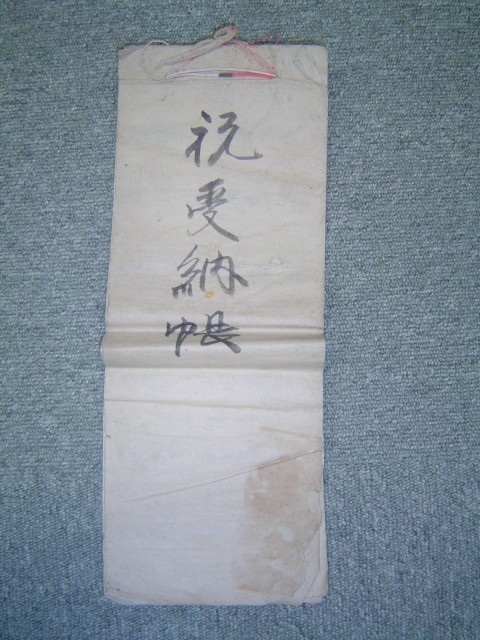 祝受納帳